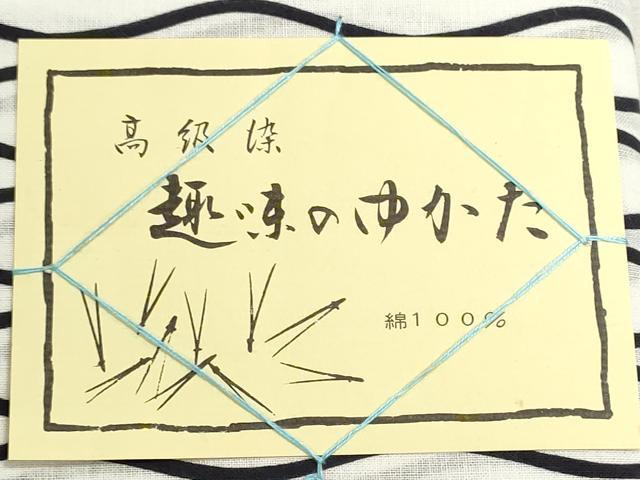 高級染
趣味のゆかた
綿１００％